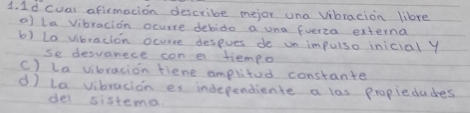 1.1 ¿Cual afirmación describe mejor una vibración libre
a) La vibración ocurre debido a una fuerza externa
b) La vibración ocurre despues de un impulso inicial y
se desvanece con el tiempo
c) La vibración tiene amplitud constante
d) La vibración es independiente a las propiedades
del sistema.